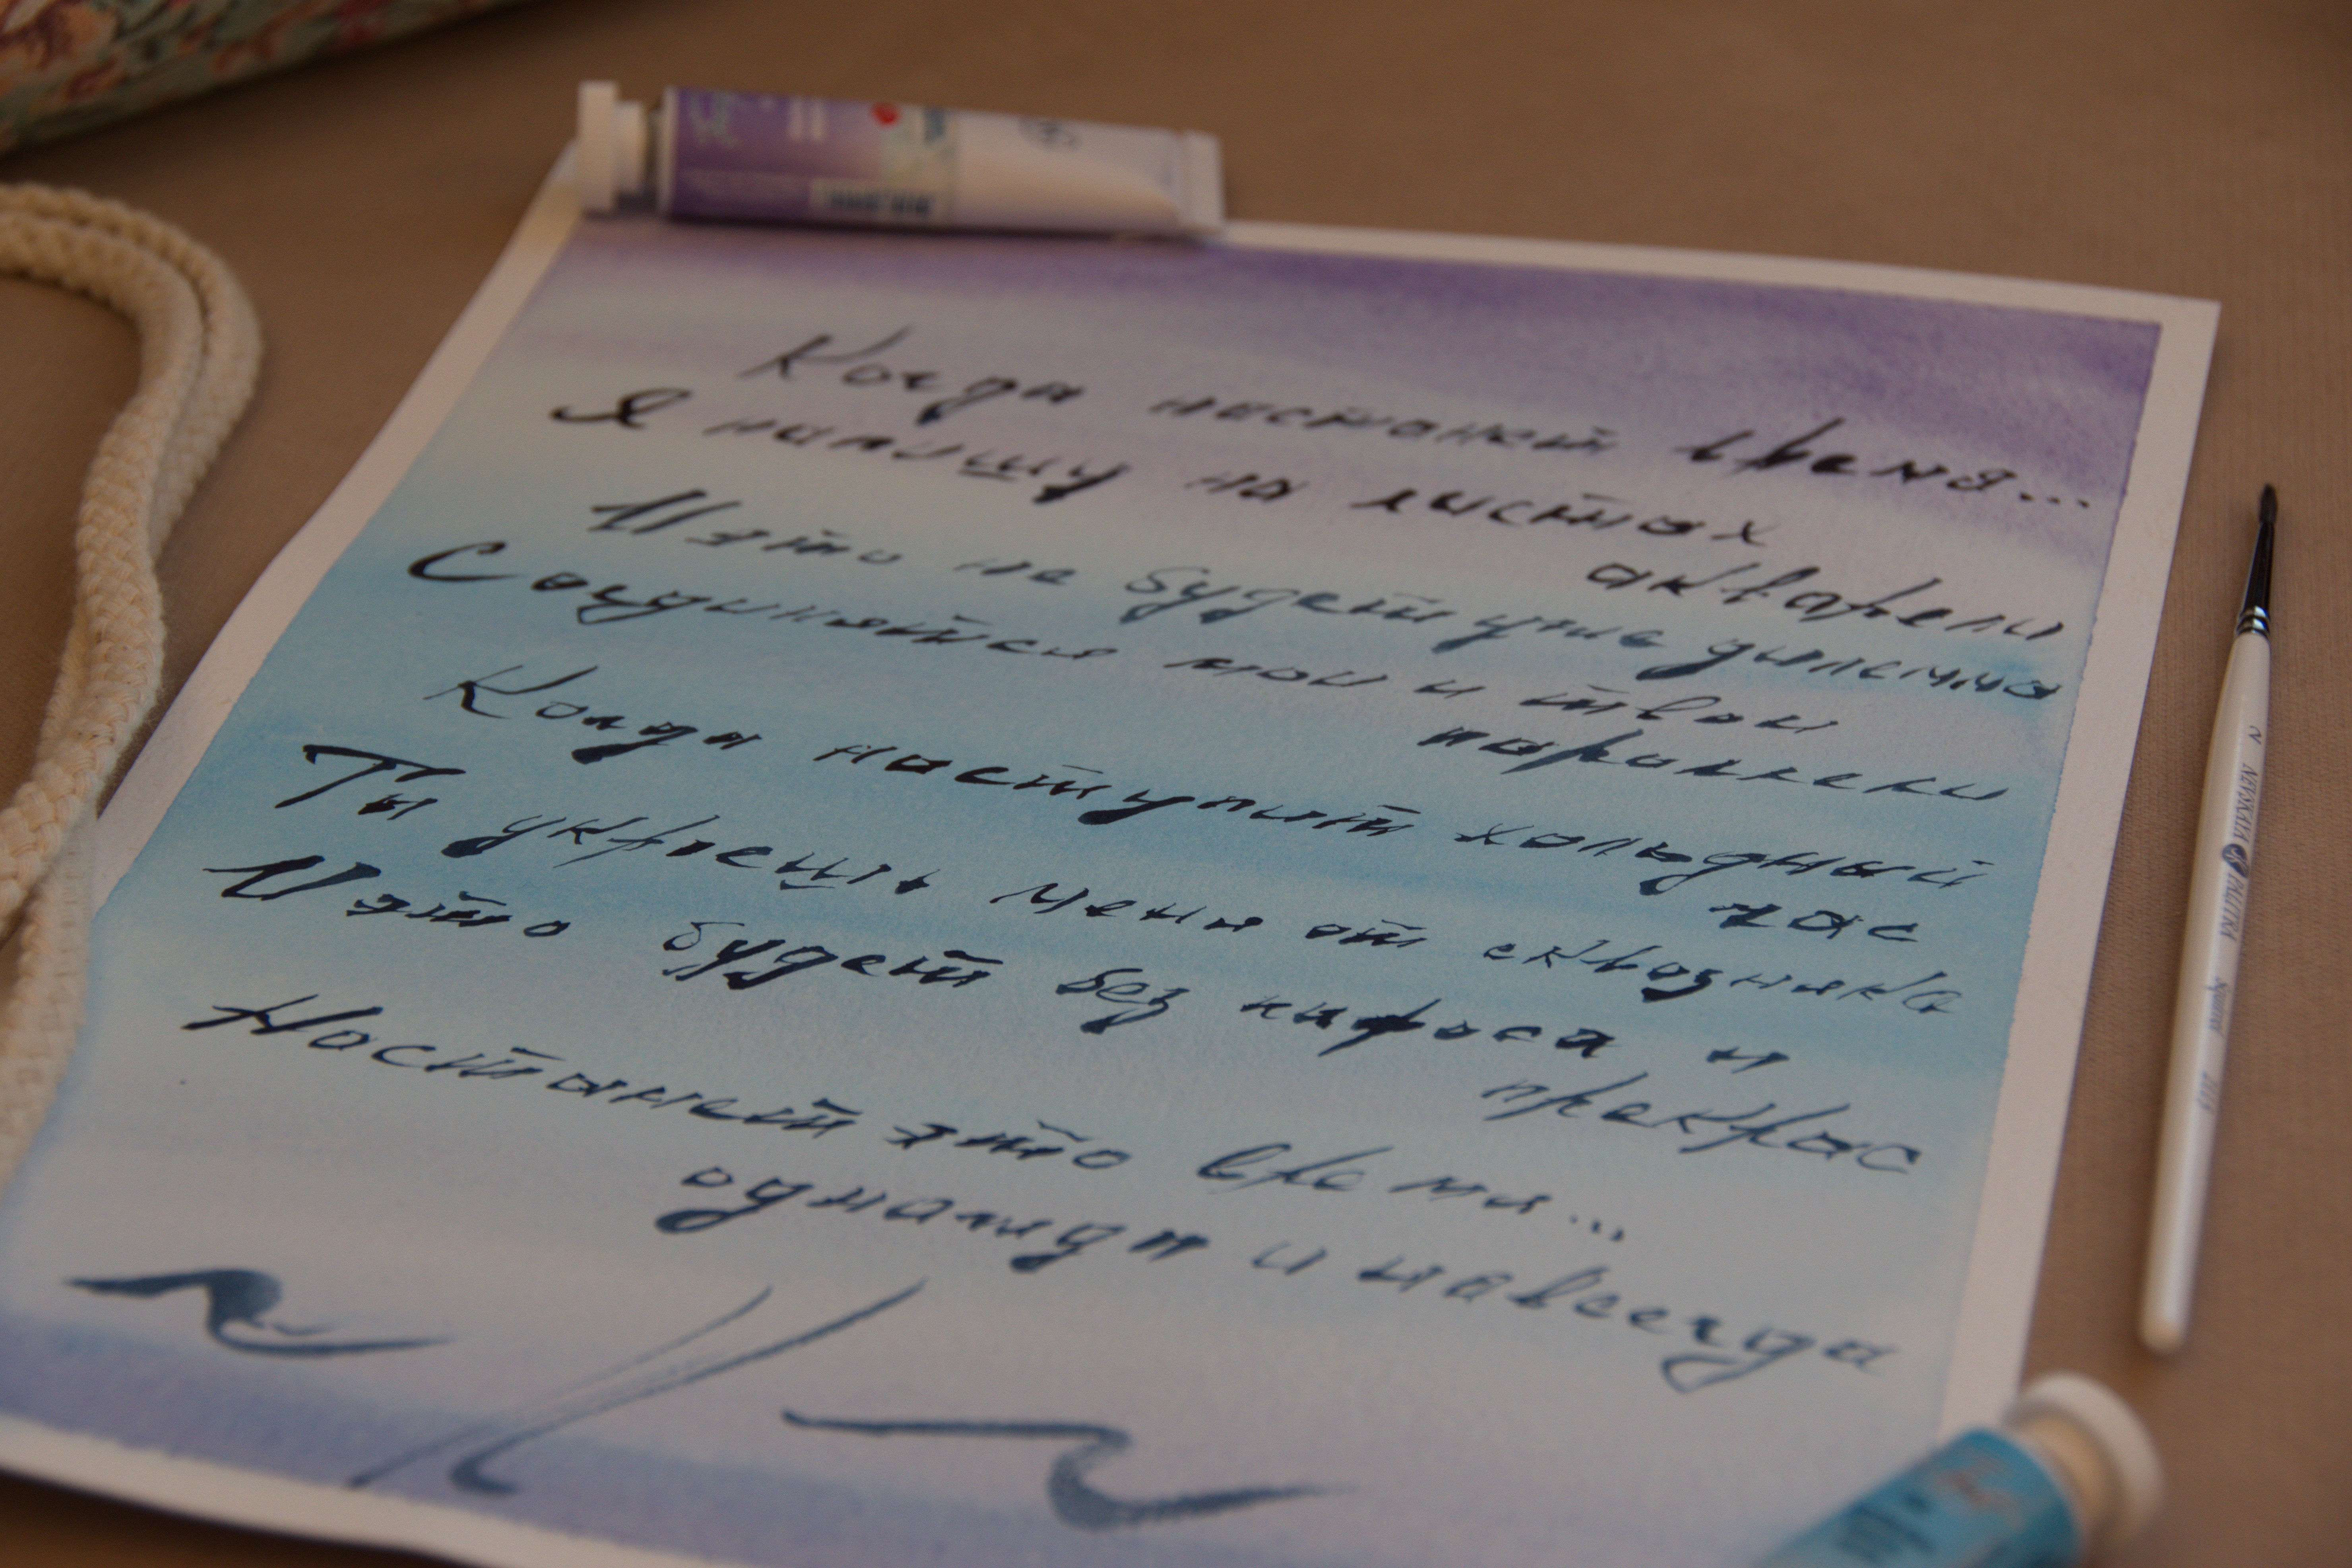 Когда настанет время...
Я напишу на листах
акварели
И это не будет уже дилемма
Соединятся мои и твои
параллели
Когда наступит холодный
час
Ты укроешь меня от сквозняка
И это будет без и
прекрас
Настанет это время...
однажды и навсегда
NEVSKAYA PALITRA